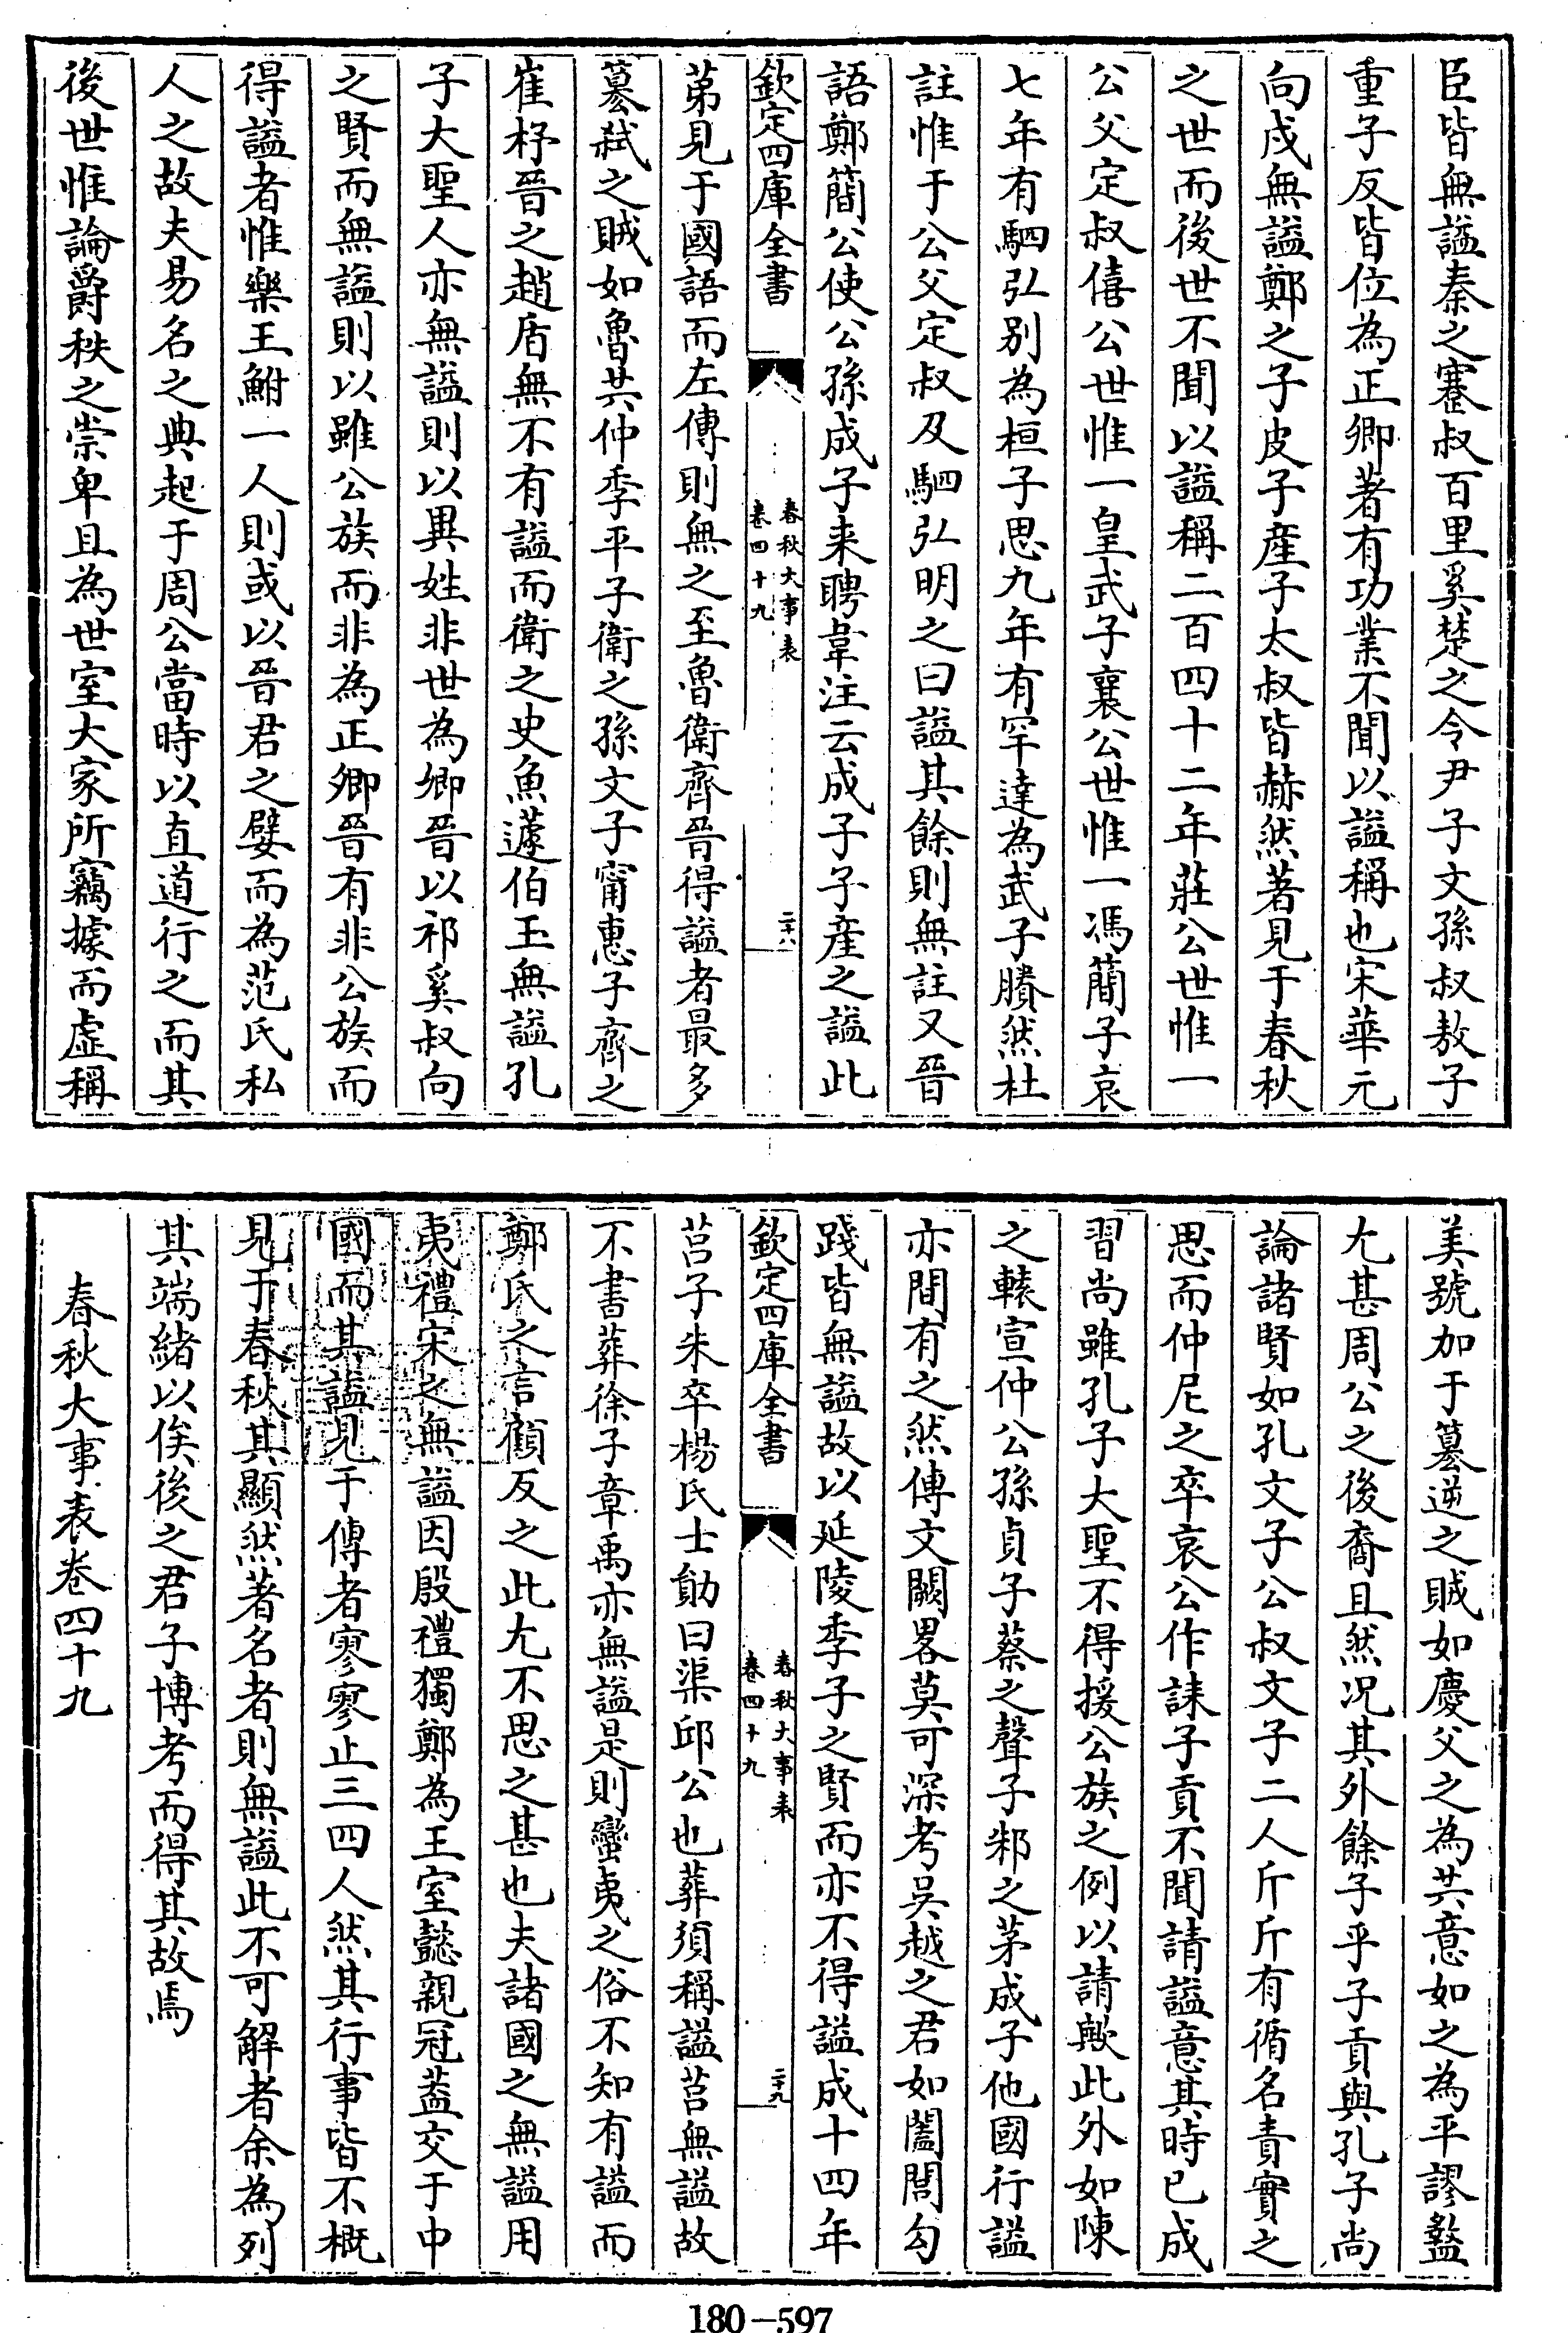 臣皆無諡秦之蹇叔百里奚楚之令尹子文孫叔敖子
重子反皆位為正卿著有功業不聞以諡稱也宋華元
向戌無諡鄭之子皮子產子太叔皆赫然著見于春秋
之世而後世不聞以諡稱二百四十二年莊公世惟一
公父定叔僖公世惟一皇武子襄公世惟一馮簡子哀
七年有駟弘别為桓子思九年有罕達為武子賸然杜
註惟于公父定叔及駟弘明之曰諡其餘則無註又晉
語鄭簡公使公孫成子来聘韋注云成子子產之諡此
欽定四庫全書
春秋大事表
卷四十九
二十八
苐見于國語而左傳則無之至魯衛齊晉得諡者最多
簒弑之賊如魯共仲季平子衛之孫文子甯惠子齊之
崔杼晉之趙盾無不有諡而衛之史魚蘧伯玉無諡孔
子大聖人亦無諡則以異姓非世為卿晉以祁奚叔向
之賢而無諡則以雖公族而非為正卿晉有非公族而
得諡者惟樂王鮒一人則或以晉君之嬖而為范氏私
人之故夫易名之典起于周公當時以直道行之而其
後世惟論爵秩之崇卑且為世室大家所竊據而虛稱
美號加于簒逆之賊如慶父之為共意如之為平謬盭
尤甚周公之後裔且然况其外餘子乎子貢與孔子尚
論諸賢如孔文子公叔文子二人斤斤有循名責實之
思而仲尼之卒哀公作誄子貢不聞請諡意其時已成
習尚雖孔子大聖不得援公族之例以請歟此外如陳
之轅宣仲公孫貞子蔡之聲子邾之茅成子他國行諡
亦間有之然傳文闕畧莫可深考吳越之君如闔閭勾
踐皆無諡故以延陵季子之賢而亦不得諡成十四年
欽定四庫全書
春秋大事表
卷四十九
二十九
莒子朱卒楊氏士勛曰渠邱公也葬須稱諡莒無諡故
不書葬徐子章禹亦無諡是則蠻夷之俗不知有諡而
鄭氏之言顧反之此尤不思之甚也夫諸國之無諡用
夷禮宋之無諡因殷禮獨鄭為王室懿親冠葢交于中
國而其諡見于傳者寥寥止三四人然其行事皆不概
見于春秋其顯然著名者則無諡此不可解者余為列
其端緒以俟後之君子博考而得其故焉
春秋大事表卷四十九
180-597